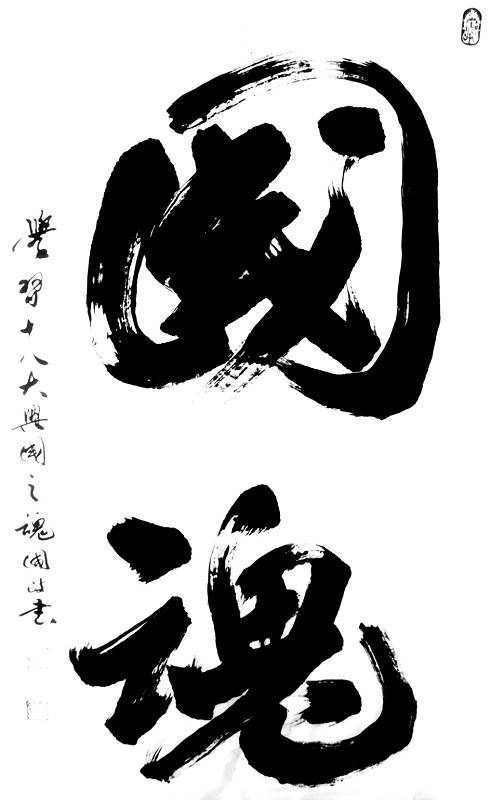 國魂
學習十八大興國之魂書